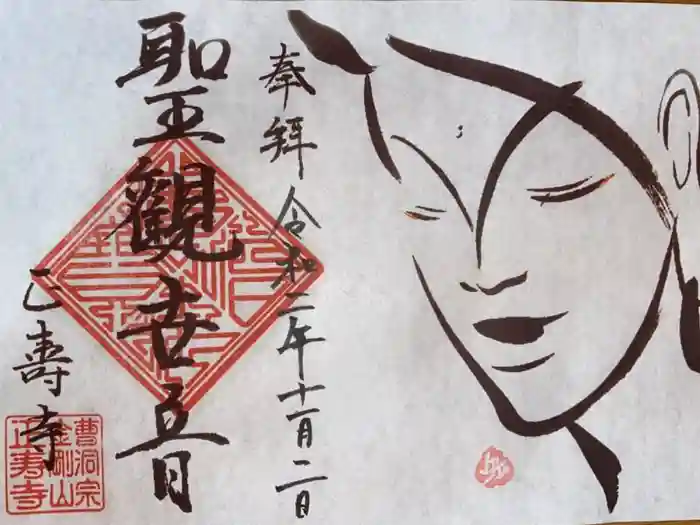 奉拝 令和二年十一月二日
聖観世音
正寿寺
曹洞宗
金剛山
正寿寺